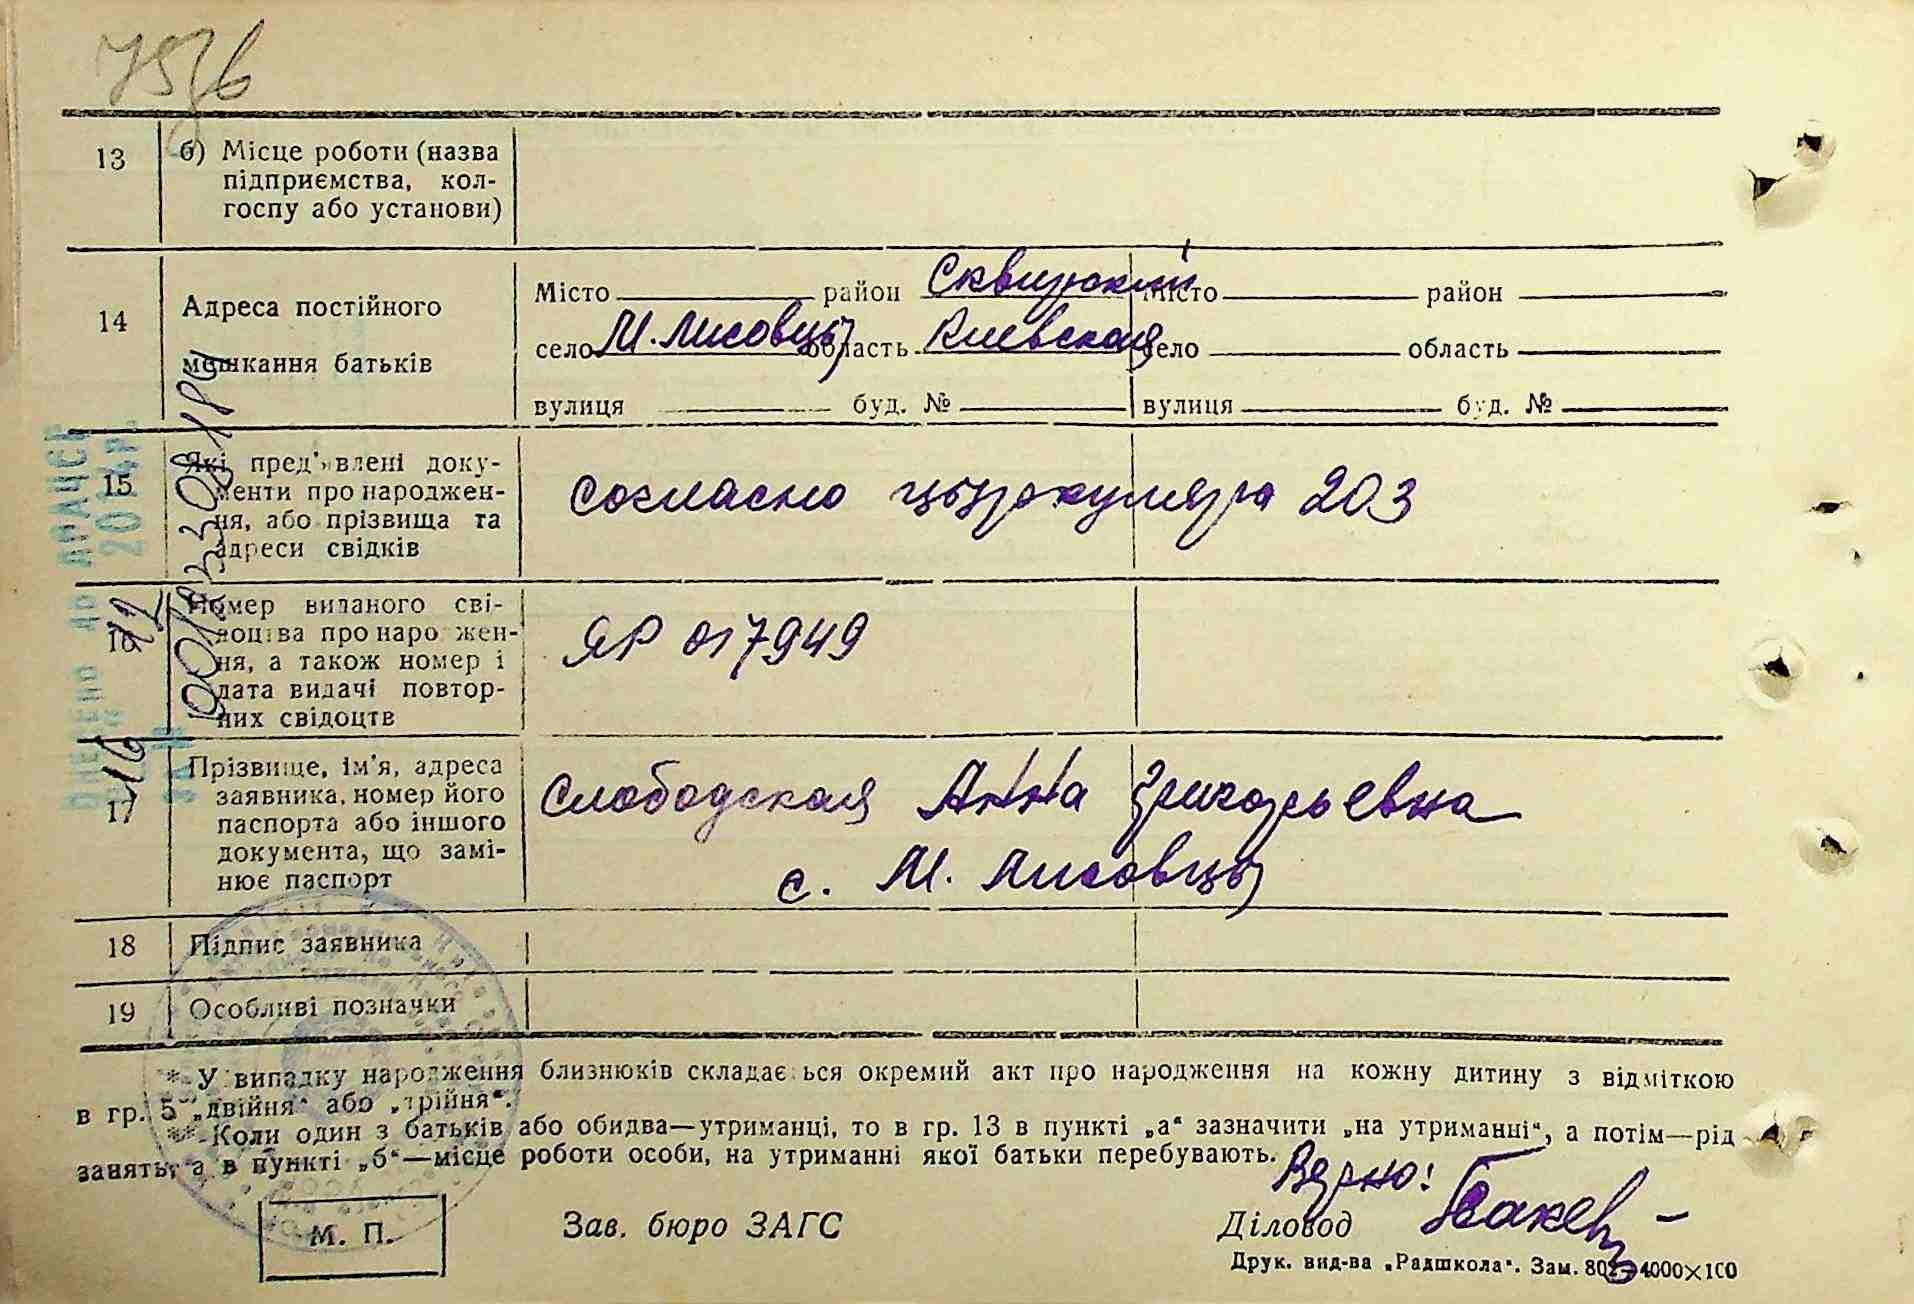 13 б) Місце роботи (назва
підприємства, кол-
госпу або установи)
Місто район Сквирский Місто район
14 Адреса постійного
село М. Лисовцы область Киевская село область
мешкання батьків
вулиця буд. № вулиця буд. №
15 Які пред'явлені доку-
менти про народжен-
ня, або прізвища та
адреси свідків
согласно цыркуляра 203
16 Номер виданого сві-
доцтва про народжен-
ня, а також номер і
дата видачі повтор-
них свідоцтв
ЯР 017949
17 Прізвище, ім'я, адреса
заявника, номер його
паспорта або іншого
документа, що замі-
нює паспорт
Слободская Анна Григорьевна
с. М. Лисовцы
18 Підпис заявника
19 Особливі позначки
* У випадку народження близнюків складається окремий акт про народження на кожну дитину з відміткою
в гр. 5 „двійня“ або „трійня“.
** Коли один з батьків або обидва—утриманці, то в гр. 13 в пункті „а“ зазначити „на утриманні“, а потім—рід
занять, а в пункті „б“—місце роботи особи, на утриманні якої батьки перебувають.
Верно!
М. П. Зав. бюро ЗАГС Діловод
Друк. вид-ва „Радшкола“. Зам. 802—4000×100